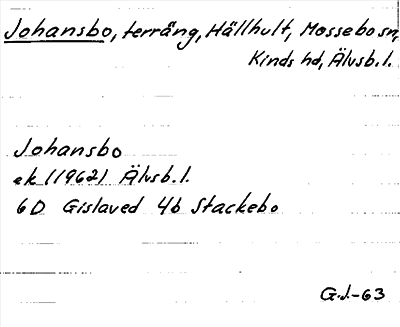 Johansbo, terräng, Hällhult, Mossebo sn,
Kinds hd, Älvsb. l.
Johansbo
ek (1962) Älvsb. l.
6D Gislaved 4b Stackebo
G.J.-63